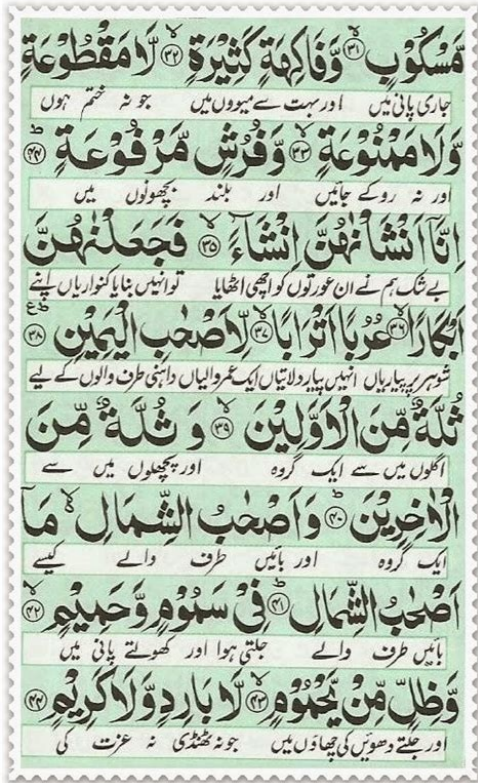 مَّسْكُوْبٍ ﴿۳۱﴾ وَّفَاكِهَةٍ كَثِيْرَةٍ ﴿۳۲﴾ لَّا مَقْطُوْعَةٍ
جاری پانی میں اور بہت سے میووں میں جو نہ ختم ہوں
وَّلَا مَمْنُوْعَةٍ ﴿۳۳﴾ وَّفُرُشٍ مَّرْفُوْعَةٍ ﴿۳۴﴾
اور نہ روکے جائیں اور بلند بچھونوں میں
اِنَّاۤ اَنْشَاْنٰهُنَّ اِنْشَآءً ﴿۳۵﴾ فَجَعَلْنٰهُنَّ
بے شک ہم نے ان عورتوں کو اچھی اٹھایا تو انہیں بنایا کنواریاں اپنے
اَبْكَارًا ﴿۳۶﴾ عُرُبًا اَتْرَابًا ﴿۳۷﴾ لِّاَصْحٰبِ الْيَمِيْنِ ﴿۳۸﴾
شوہر پر پیاریاں انہیں پیار دلاتیاں ایک عمر والیاں داہنی طرف والوں کے لیے
ثُلَّةٌ مِّنَ الْاَوَّلِيْنَ ﴿۳۹﴾ وَ ثُلَّةٌ مِّنَ
اگلوں میں سے ایک گروہ اور پچھلوں میں سے
الْاٰخِرِيْنَ ﴿۴۰﴾ وَاَصْحٰبُ الشِّمَالِ مَاۤ
ایک گروہ اور بائیں طرف والے کیسے
اَصْحٰبُ الشِّمَالِ ﴿۴۱﴾ فِيْ سَمُوْمٍ وَّحَمِيْمٍ ﴿۴۲﴾
بائیں طرف والے جلتی ہوا اور کھولتے پانی میں
وَّظِلٍّ مِّنْ يَّحْمُوْمٍ ﴿۴۳﴾ لَّا بَارِدٍ وَّلَا كَرِيْمٍ ﴿۴۴﴾
اور جلتے دھوئیں کی چھاؤں میں جو نہ ٹھنڈی نہ عزت کی